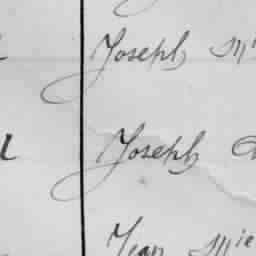 Joseph
Joseph
Jean Mie